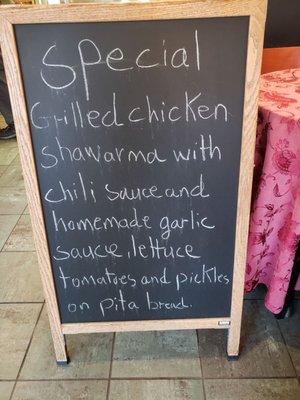 special
Grilled chicken
shawarma with
chili sauce and
homemade garlic
sauce, lettuce
tomatoes and pickles
on pita bread.